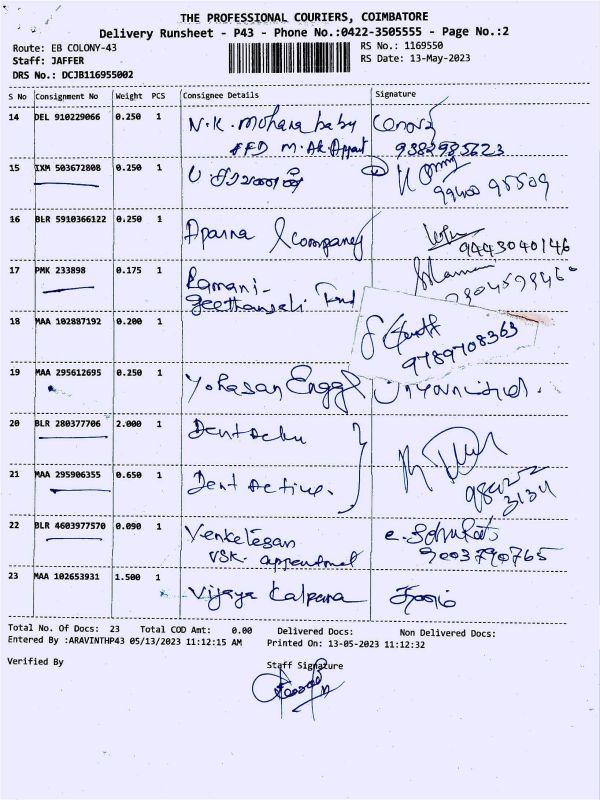 THE PROFESSIONAL COURIERS, COIMBATORE
Delivery Runsheet - P43 - Phone No.:0422-3505555 - Page No.:2
Route: EB COLONY-43
Staff: JAFFER
DRS No.: DCJB116955002
RS No.: 1169550
RS Date: 13-May-2023
S No Consignment No Weight PCS Consignee Details Signature
14 DEL 910229066 0.250 1 N.K. Mohana baby
9382985623
15 IXM 503672808 0.250 1
16 BLR 5910366122 0.250 1 Aparna & company
9443040146
17 PMK 233898 0.175 1 Ramani-
geethanjali
18 MAA 102887192 0.200 1
9789708363
19 MAA 295612695 0.250 1 Yohasan Engg
20 BLR 280377706 2.000 1
21 MAA 295906355 0.650 1 Dent Active.
22 BLR 4603977570 0.090 1 Venkatesan
VSK. 9003790765
23 MAA 102653931 1.500 1 Vijaya Kalpana
Total No. Of Docs: 23 Total COD Amt: 0.00 Delivered Docs: Non Delivered Docs:
Entered By :ARAVINTHP43 05/13/2023 11:12:15 AM Printed On: 13-05-2023 11:12:32
Verified By Staff Signature